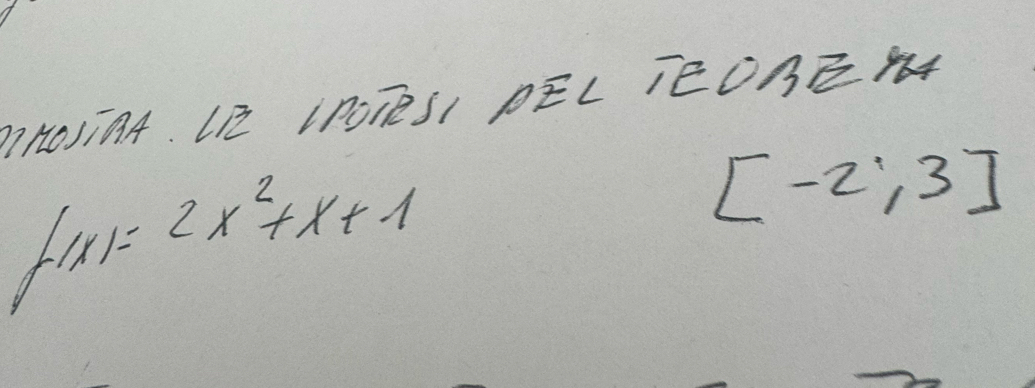 DIMOSTRA. LE IPOTESI DEL TEOREMA
f(x)= 2x²+x+1 [-2;3]